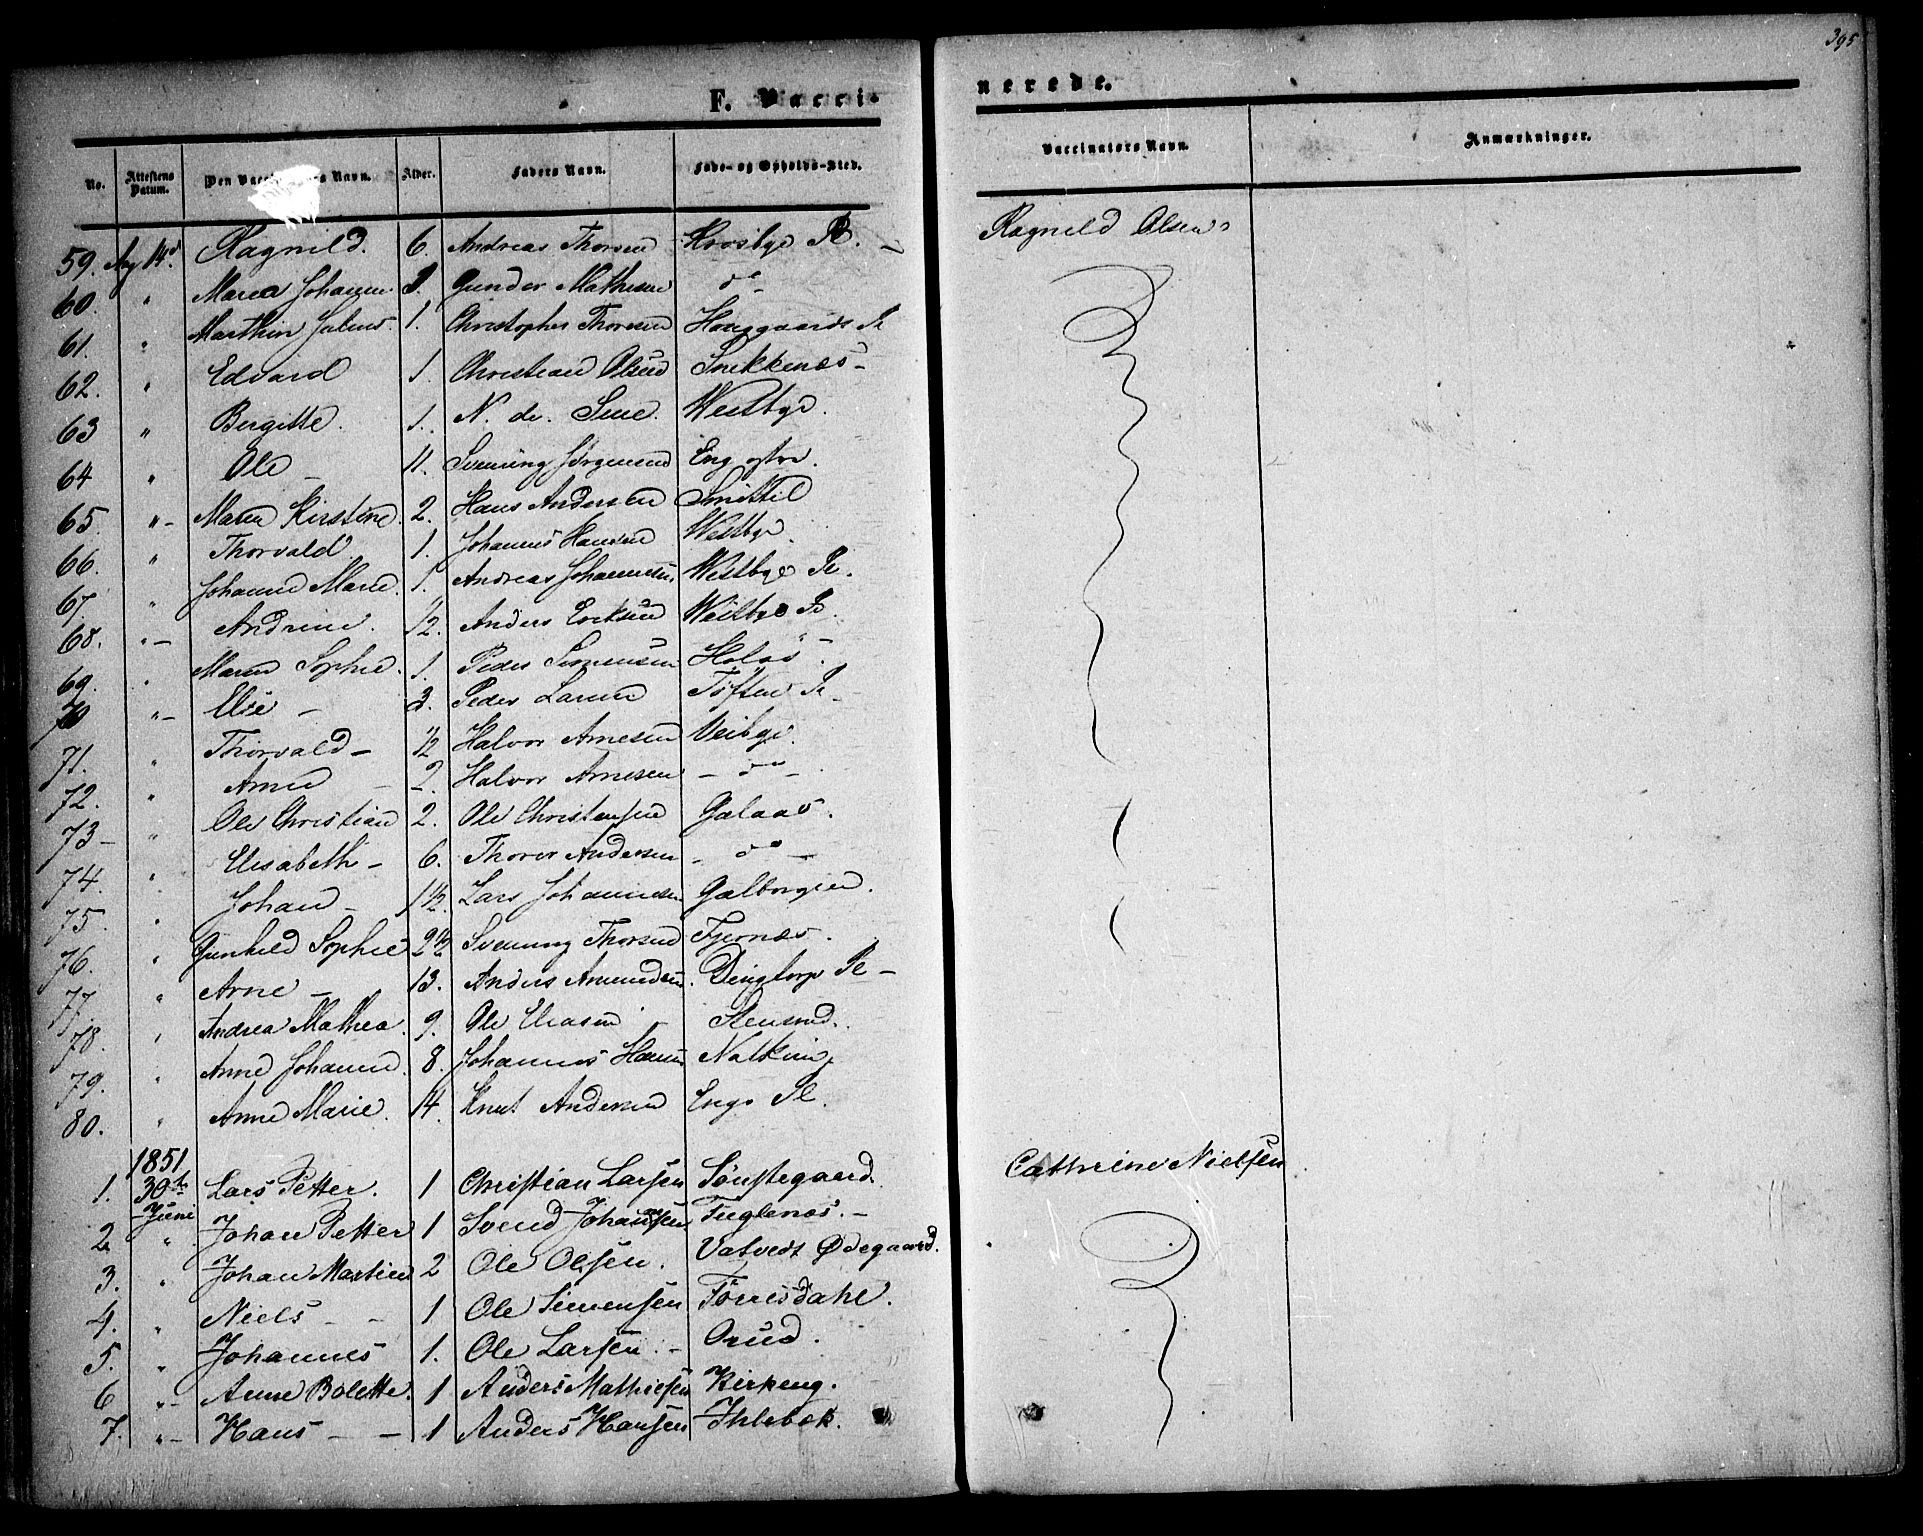 395
F. Vacci-
nerede.
No. Attestens Datum. Den Vacci Navn. Alder. Faders Navn. Føde- og Opholds-Sted. Vaccinators Navn. Anmærkninger.
59. Aug 14d. Ragnild. 6. Andreas Thorsen Krosbye Pl. Ragnild Olsen
60. " Maria Johanne 3. Gunder Mathesen do
61. " Marthin Julius. 1. Christopher Thoresen Haaggaards Pl
62. " Edvard 1. Christian Olsen Snekkenæs
63 " Birgitte. 1. N. de. Sme. Westbye.
64 " Ole 11. Svenning Jørgensen Eng østre.
65. " Maren Kirstine. 2. Hans Andersen Smittil
66. " Thorvald 1. Johannes Hansen Westbye.
67 " Johanne Marie. 1. Andreas Johannesen Westbye Pl.
68. " Andrine. 1/2. Anders Ericksen Westbye Pl.
69. " Maren Sophie. 1. Peder Simensen Holøs
70 " Elise 3. Peder Larsen Tøften Pl.
71. " Thorvald 1/2 Halvor Arnesen Veibye.
72. " Arne 2. Halvor Arnesen do
73 " Ole Christian 2. Ole Christensen Gælaas.
74. " Elisabeth 6. Thorer Andersen do
75. " Johan 1 1/2. Lars Johannesen Gælborgen.
76. " Gunhild Sophie 2 1/2 Svenning Thorsen Fjernæs.
77. " Arne 13. Anders Amundsen. Dingtorp Pl
78. " Andrea Mathea. 9. Ole Eliasen Stensrud.
79. " Anne Johanne. 8. Johannes Hansen Natking
80. " Anne Marie. 14. Knut Andersen Enge Pl.
1851
1. 30te Juni Lars Petter. 1 Christian Larsen Sønstegaard. Cathrine Nielsen
2 " Johan Petter 1 Svend Johannsen Fuglenæs.
3. " Johan Martin 2 Ole Olsen. Vatvedt Ødegaard.
4. " Niels 1 Ole Simensen Torrisdahl.
5. " Johannes 1. Ole Larsen. Orud.
6 " Anne Bolette. 1 Anders Mathiesen Kirkeng.
7. " Hans 1 Anders Hansen Ihlebæk.